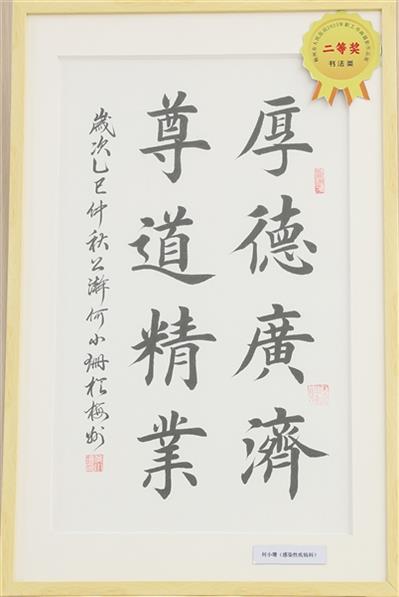 厚德廣濟
尊道精業
歲次乙巳仲秋公瀚何小珊於梅州
二等奖
书法类
何小珊（感染性疾病科）